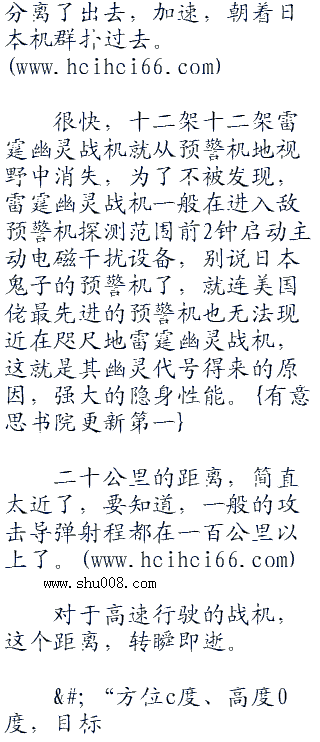 分离了出去，加速，朝着日
本机群扑过去。
(www.hcihci66.com)
很快，十二架十二架雷
霆幽灵战机就从预警机地视
野中消失，为了不被发现，
雷霆幽灵战机一般在进入敌
预警机探测范围前2钟启动主
动电磁干扰设备，别说日本
鬼子的预警机了，就连美国
佬最先进的预警机也无法现
近在咫尺地雷霆幽灵战机，
这就是其幽灵代号得来的原
因，强大的隐身性能。{有意
思书院更新第一}
二十公里的距离，简直
太近了，要知道，一般的攻
击导弹射程都在一百公里以
上了。(www.hcihci66.com)
www.shu008.com
对于高速行驶的战机，
这个距离，转瞬即逝。
&#; “方位c度、高度0
度，目标